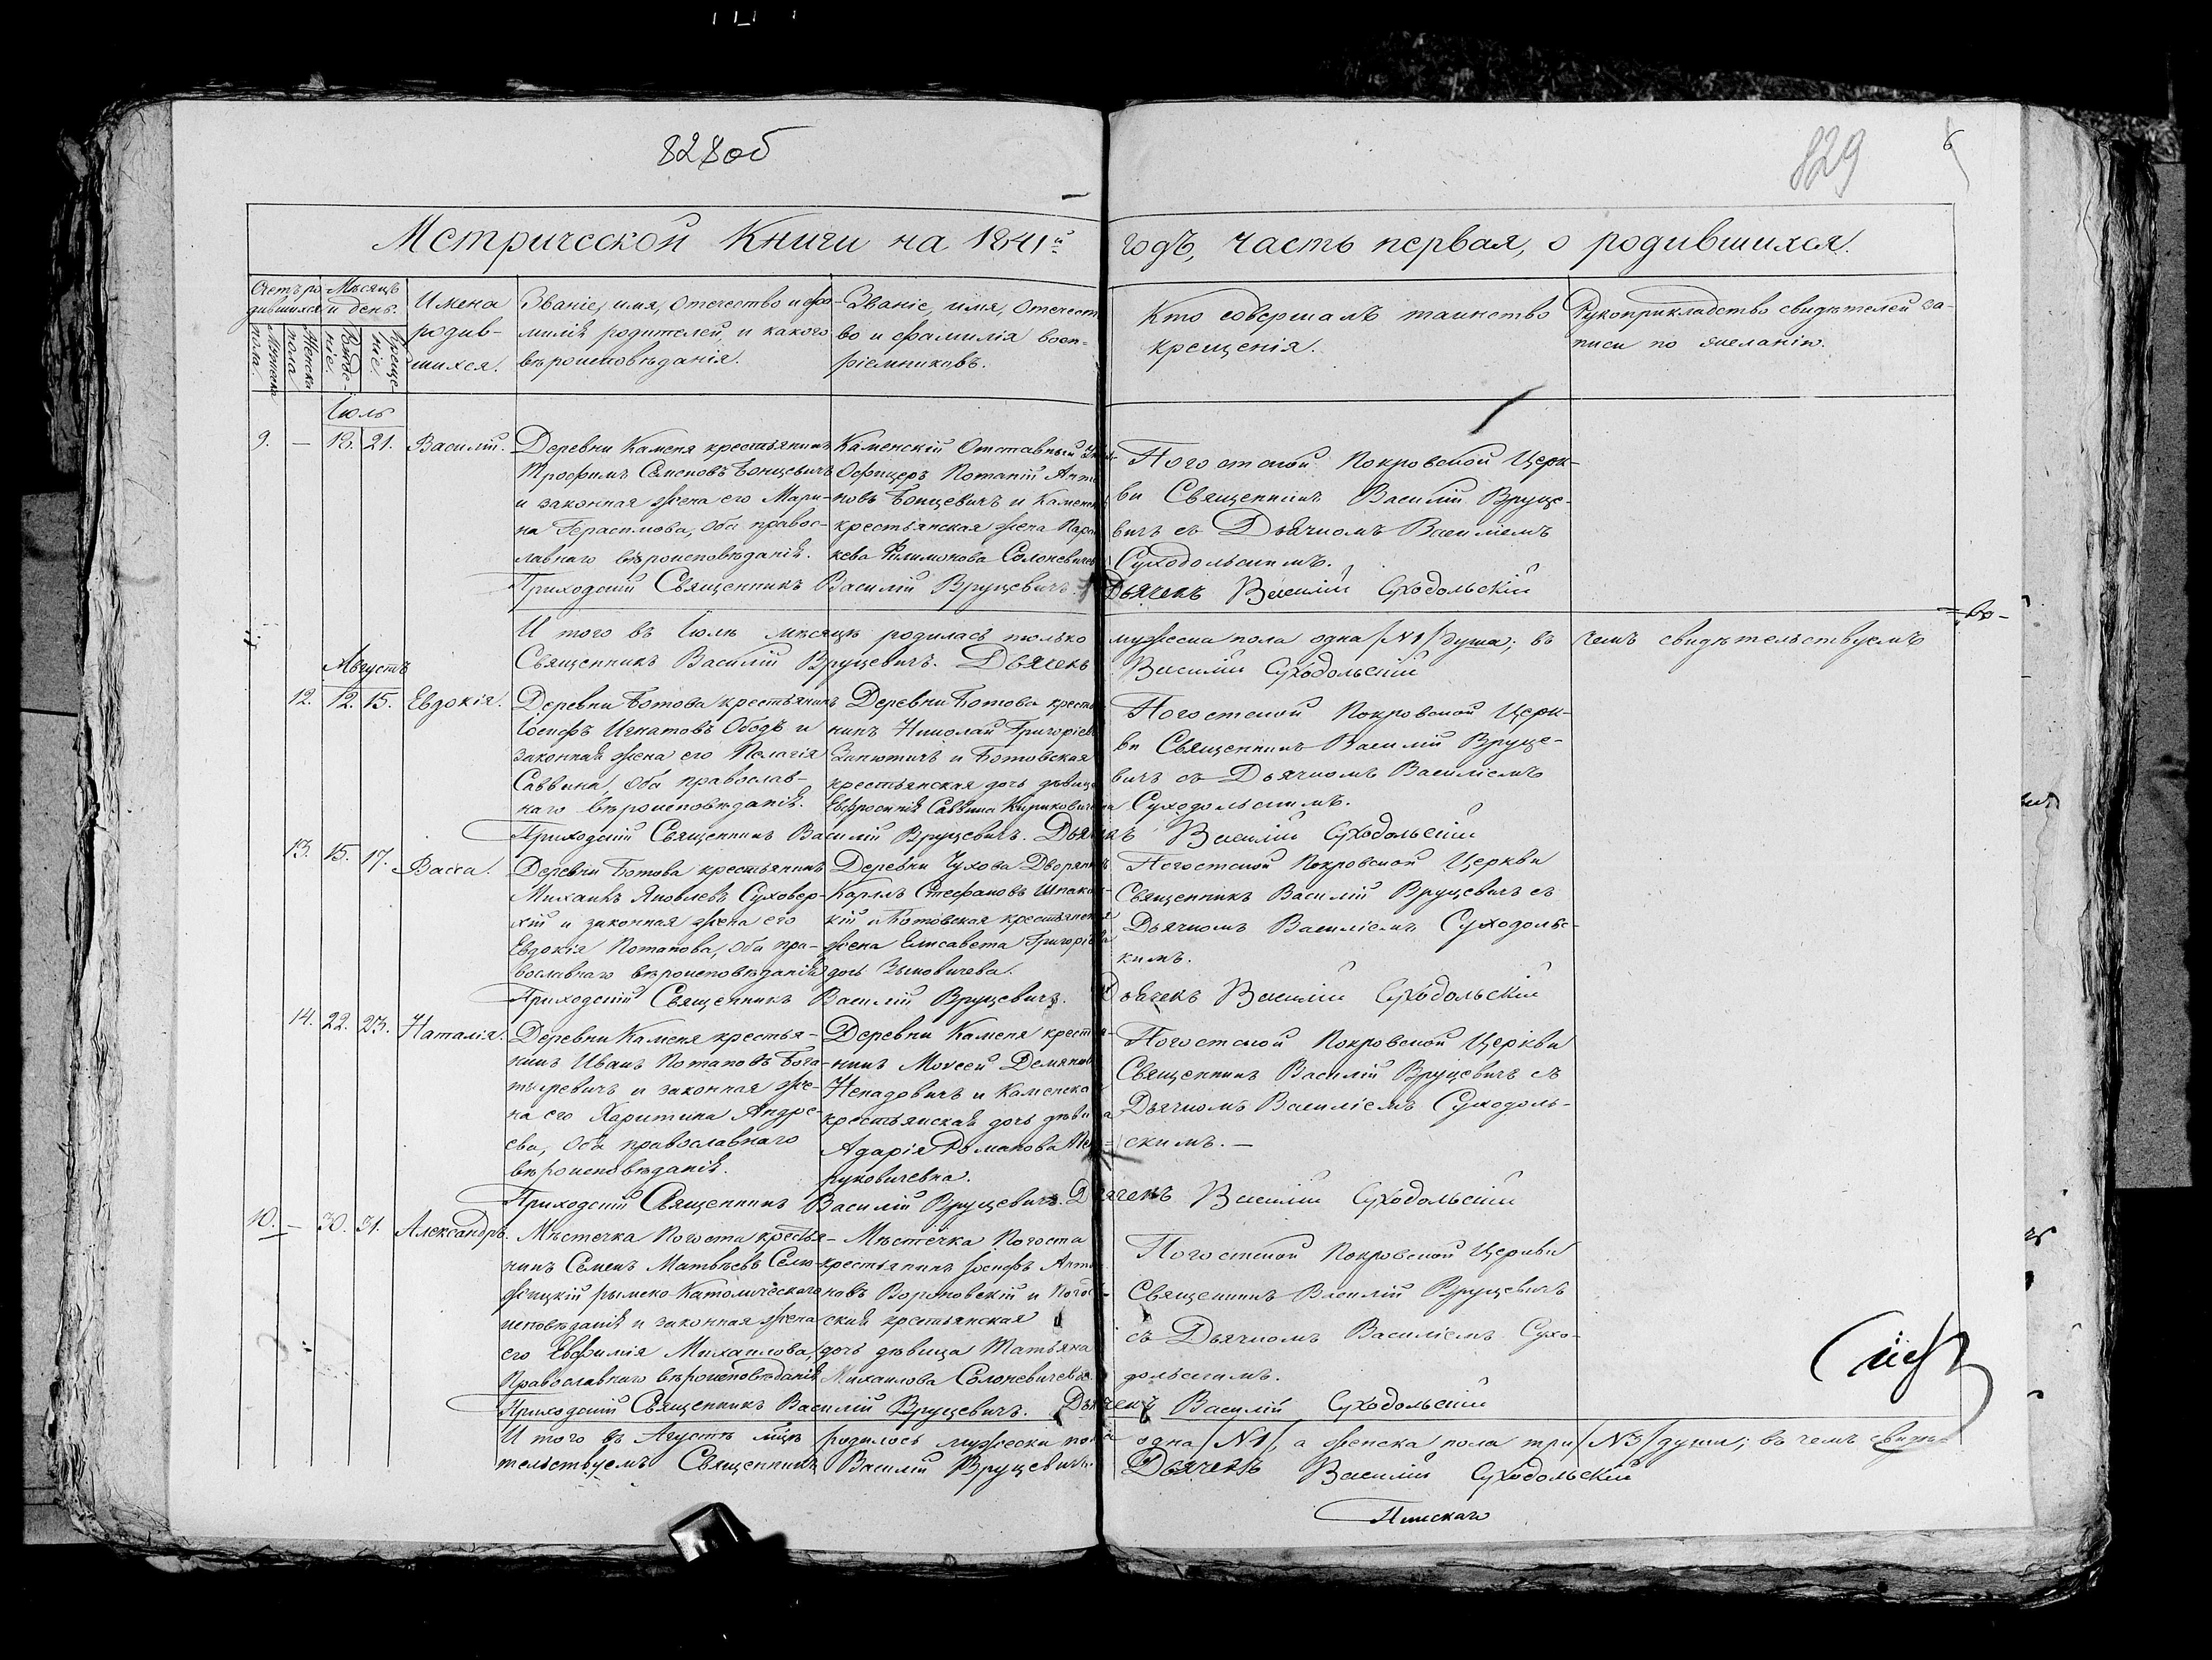 828об
829
6
Метрической Книги на 1841й годъ, часть первая, о родившихся.
Счетъ ро-
дившихся
Мѣсяцъ
и день.
Мужеска
пола.
Женска
пола
Рожде-
ніе
Креще-
ніе
Имена
родив-
шихся.
Званіе, имя, отечество и фа-
милія родителей, и какого
вѣроисповѣданія.
Званіе, имя, отечест
во и фамилія восп-
ріемниковъ.
Кто совершалъ таинство
крещенія.
Рукоприкладство свидѣтелей за-
писи по желанію.
Іюль
9. — 18. 21. Василій.
Деревни Каменя крестьянинъ
Трофимъ Семеновъ Бонцевичъ
и законная жена его Мари-
на Герасимова, оба правос-
лавнаго вѣроисповѣданія.
Каменскій Отставный
Офицеръ Потапій Анто
новъ Бонцевичъ и Каменск
крестьянская жена Парас
кева Филимонова Солоневичев
Погостской Покровской Церк-
ви Священникъ Василій Вруце-
вичъ съ Дьячкомъ Василіемъ
Суходольскимъ.
Приходскій Священникъ Василій Вруцевичъ. Дьячекъ Василій Суходольскій
И того въ Іюлѣ мѣсяцѣ родилась только мужеска пола одна /№1/ душа; въ чемъ свидѣтельствуемъ
Священникъ Василій Вруцевичъ. Дьячекъ Василій Суходольскій
Августъ
12. 12. 15. Евдокія.
Деревни Ботова крестьянинъ
Іосифъ Игнатовъ Ободъ и
законная жена его Пелагія
Саввина, оба православ-
наго вѣроисповѣданія.
Деревни Ботова кресть
нинъ Николай Григоріев
и Ботовская
крестьянская дочь дѣвица
Евфросинія Саввина Кириковичевна
Погостской Покровской Церк-
ви Священникъ Василій Вруце-
вичъ съ Дьячкомъ Василіемъ
Суходольскимъ.
Приходскій Священникъ Василій Вруцевичъ. Дьячекъ Василій Суходольскій
13. 15. 17. Васса.
Деревни Ботова крестьянинъ
Михаилъ Яковлевъ Суховер-
хій и законная жена его
Евдокія Потапова, оба пра-
вославнаго вѣроисповѣданія
Деревни Чухова Дворянинъ
Карлъ Стефановъ Шпаков-
кій и Ботовская крестьянская
жена Елисавета Григоріева
дочь Зыновичева.
Погостской Покровской Церкви
Священникъ Василій Вруцевичъ съ
Дьячкомъ Василіемъ Суходольс-
кимъ.
Приходскій Священникъ Василій Вруцевичъ. Дьячекъ Василій Суходольскій
14. 22. 23. Наталія.
Деревни Каменя крестья-
нинъ Иванъ Потаповъ Бога-
тыревичъ и законная же-
на его Харитина Андре-
ева, оба православнаго
вѣроисповѣданія.
Деревни Каменя крестья-
нинъ Моисей Демянов
Ненадовичъ и Каменска
крестьянская дочь дѣвица
Адарія Романова
руковичевна.
Погостской Покровской Церкви
Священникъ Василій Вруцевичъ съ
Дьячкомъ Василіемъ Суходоль-
скимъ. —
Приходскій Священникъ Василій Вруцевичъ. Дьячекъ Василій Суходольскій
10. — 30. 31. Александръ.
Мѣстечка Погоста крестья-
нинъ Семенъ Матвѣевъ Селю-
жицкій рымско Католическаго
исповѣданія и законная жена
его Евфимія Михаилова,
Православнаго вѣроисповѣданія
Мѣстечка Погоста
крестьянинъ Іосифъ Анто
новъ Вороновскій и Погост-
ская крестьянская
дочь дѣвица Татьяна
Михаилова Солоневичевна
Погостской Покровской Церкви
Священникъ Василій Вруцевичъ
съ Дьячкомъ Василіемъ Сухо-
дольскимъ.
Приходскій Священникъ Василій Вруцевичъ. Дьячекъ Василій Суходольскій
И того въ Августѣ мцѣ родилось мужеска пола одна /№1/, а женска пола три /№3/ души; въ чемъ свидѣ-
тельствуемъ Священникъ Василій Вруцевичъ. Дьячекъ Василій Суходольскій
Пинскаго